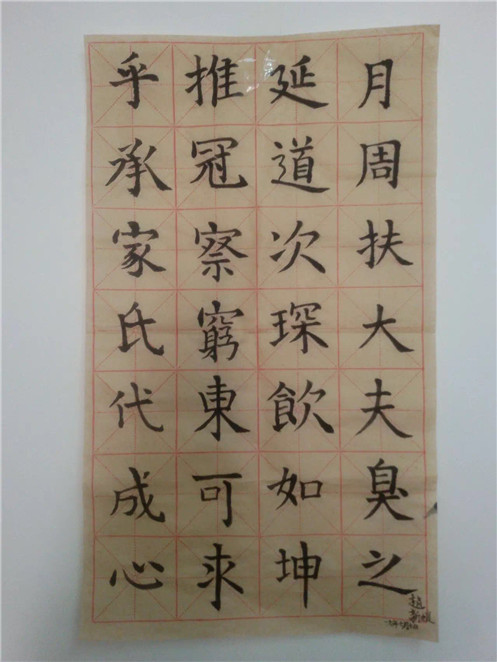 月周扶大夫臭之
延道次琛飲如坤
推冠察窮東可求
乎承家氏代成心
趙